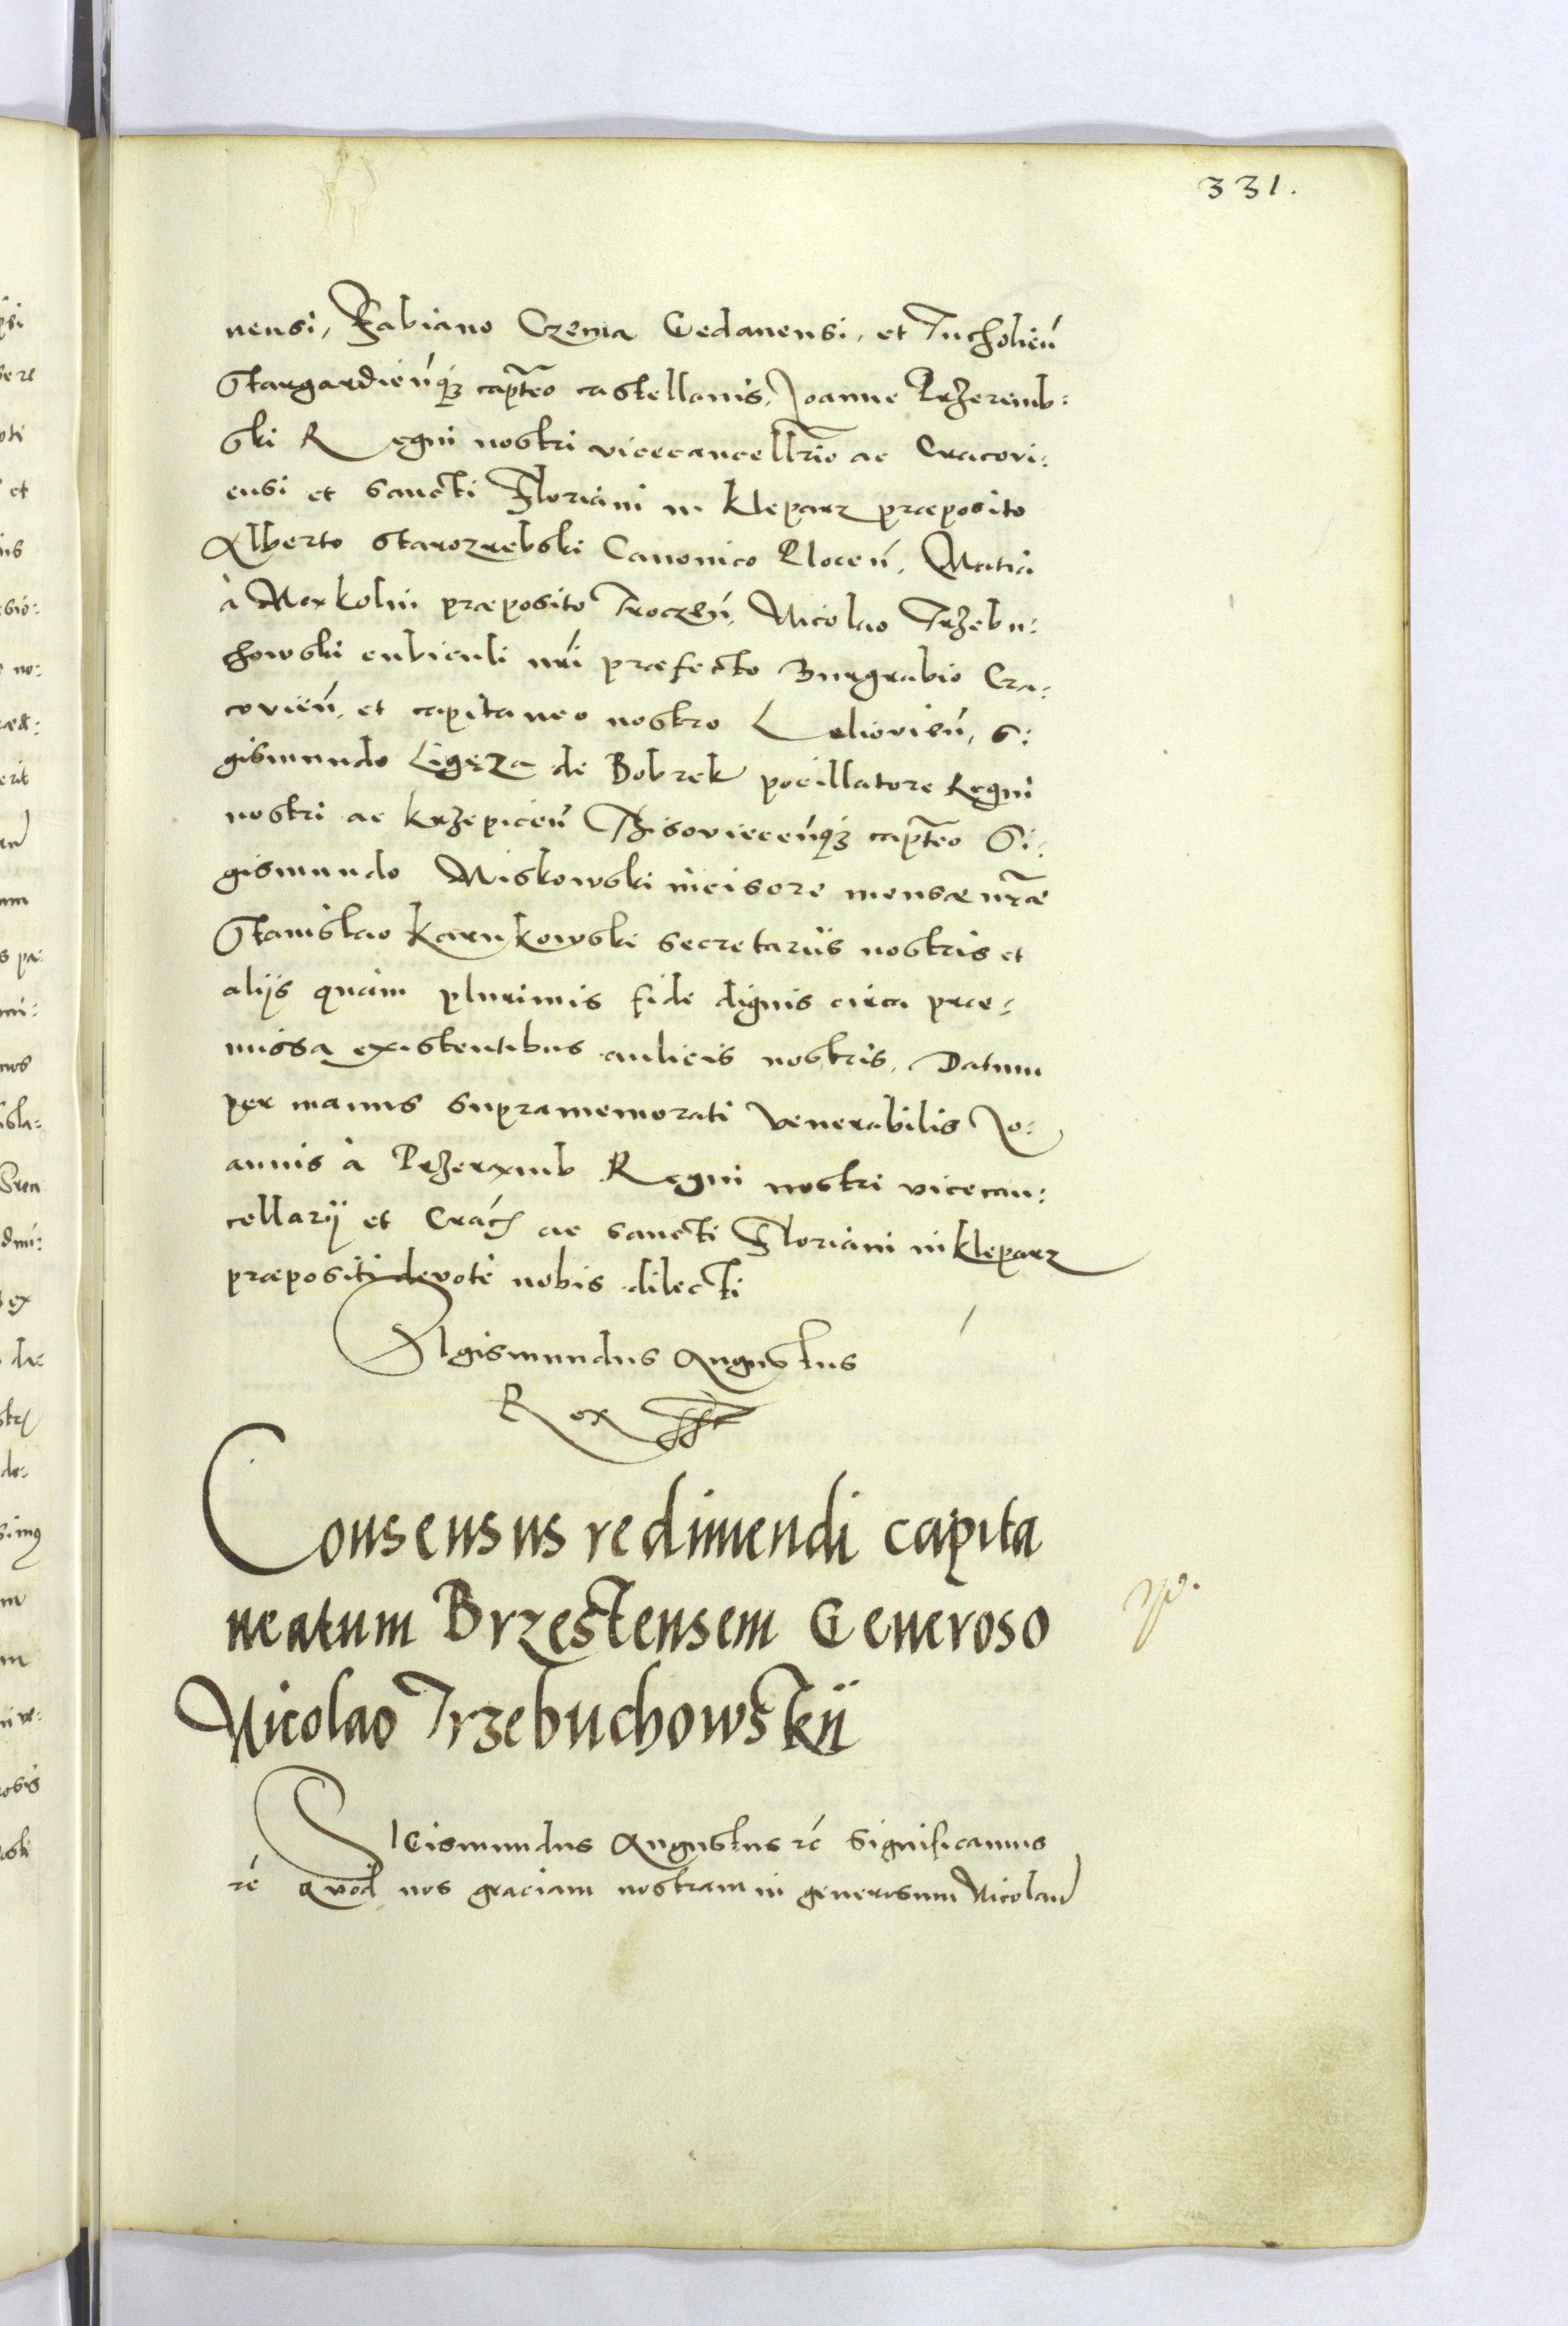 331.
nensi, Fabiano Czema Gedanensi, et Tucholień
Stargardieńq₃ capteo castellanis, Joanne Przeremb:
ski Regni nostri vicecancellrio ac Cracovi:
ensi et sancti Floriani in Kleparz præposito
Alberto Starozrebski Canonico Ploceń, Matia
à Workolin præposito Troczeń, Nicolao Trzebu:
chowski cubiculi nri præfecto Burgrabio Cra:
covień, et capitaneo nostro Leliovień, S:
gismundo Ligęza de Bobrek pocillatore Regni
nostri ac Krzepiceń Thisovieceńq₃ capteo Si:
gismundo Miskowski incisore mensæ nræ
Stanislao Karnkowski secretariis nostris et
alijs quàm plurimis fide dignis circa præ:
missa existentibus aulicis nostris. Datum
per manus supramemorati Venerabilis Jo:
annis à Przeręmb Regni nostri vicecan:
cellarij et Crać ac sancti Floriani in Kleparz
præpositi devotè nobis dilecti
SIgismundus Augustus
Rex
Consensus redimendi capita
neatum Brzestensem Generoso
Nicolao Trzebuchowskii
SIGismundus Augustus rć significamus
rć Quod nos graciam nostram in generosum Nicolau